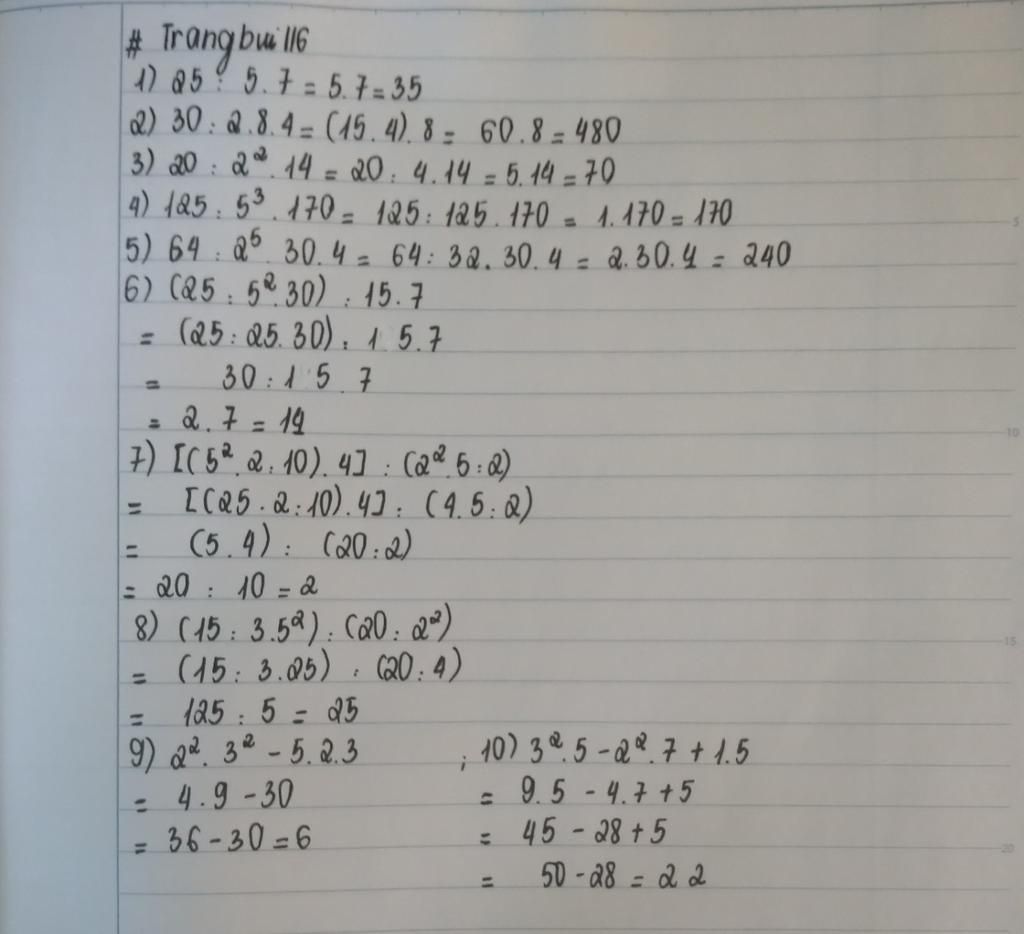 # Trangbui 116
1) 25 : 5.7 = 5.7 = 35
2) 30 : 2.8.4 = (15.4).8 = 60.8 = 480
3) 20 : 2².14 = 20 : 4.14 = 5.14 = 70
4) 125 : 5³.170 = 125 : 125.170 = 1.170 = 170
5) 64 : 2⁵.30.4 = 64 : 32.30.4 = 2.30.4 = 240
6) (25 : 5².30) : 15.7
= (25 : 25.30) : 15.7
= 30 : 15.7
= 2.7 = 14
7) [(5².2:10).4] : (2².5:2)
= [(25.2:10).4] : (4.5:2)
= (5.4) : (20:2)
= 20 : 10 = 2
8) (15 : 3.5²) : (20 : 2²)
= (15 : 3.25) : (20:4)
= 125 : 5 = 25
9) 2².3² - 5.2.3 ; 10) 3².5 - 2².7 + 1.5
= 4.9 - 30 = 9.5 - 4.7 + 5
= 36 - 30 = 6 = 45 - 28 + 5
= 50 - 28 = 22